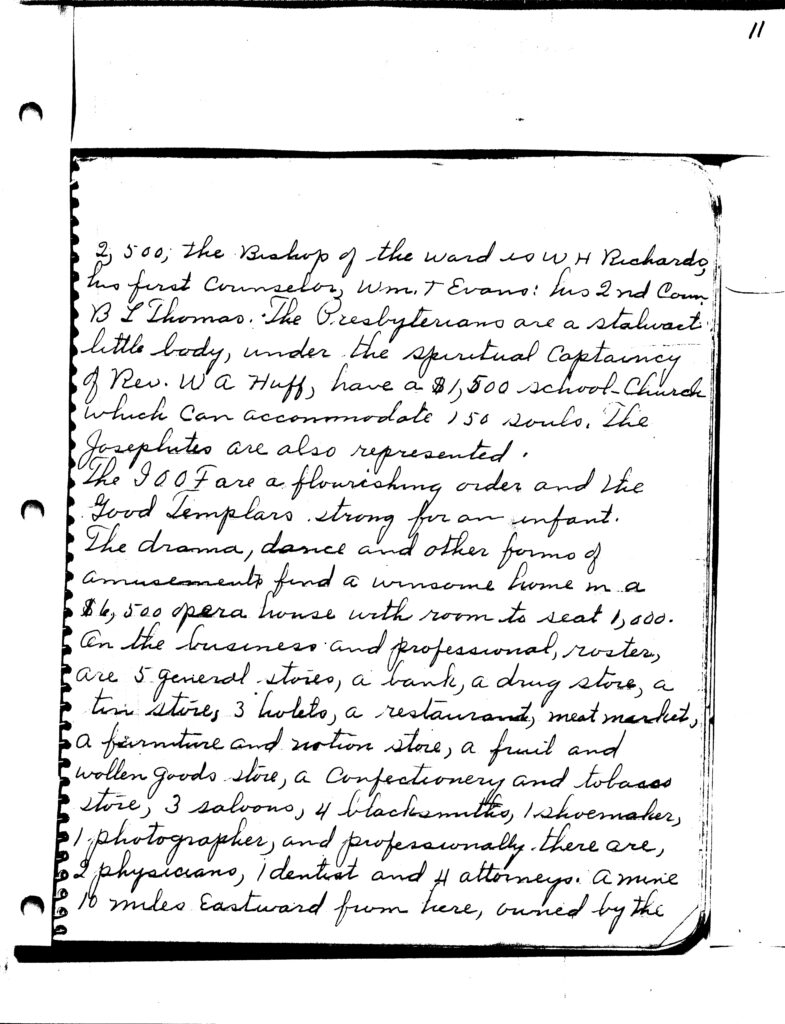 11
2,500; the Bishop of the ward is W H Richards,
his first Counselor, Wm. T Evans: his 2nd Coun
B L Thomas. The Presbyterians are a stalwart
little body, under the spiritual Captaincy
of Rev. W A Huff, have a $1,500 school-Church
which can accommodate 150 souls. The
Josephites are also represented.
The I O O F are a flourishing order and the
Good Templars strong for an infant.
The drama, dance and other forms of
amusements find a winsome home in a
$6,500 opera house with room to seat 1,000.
On the business and professional, roster,
are 5 general stores, a bank, a drug store, a
tin store, 3 holets, a restaurant, meat market,
a furniture and notion store, a fruit and
wollen goods store, a Confectionery and tobacco
store, 3 saloons, 4 blacksmiths, 1 shoemaker,
1 photographer, and professionally there are,
2 physicians, 1 dentist and 4 attorneys. A mine
10 miles Eastward from here, owned by the